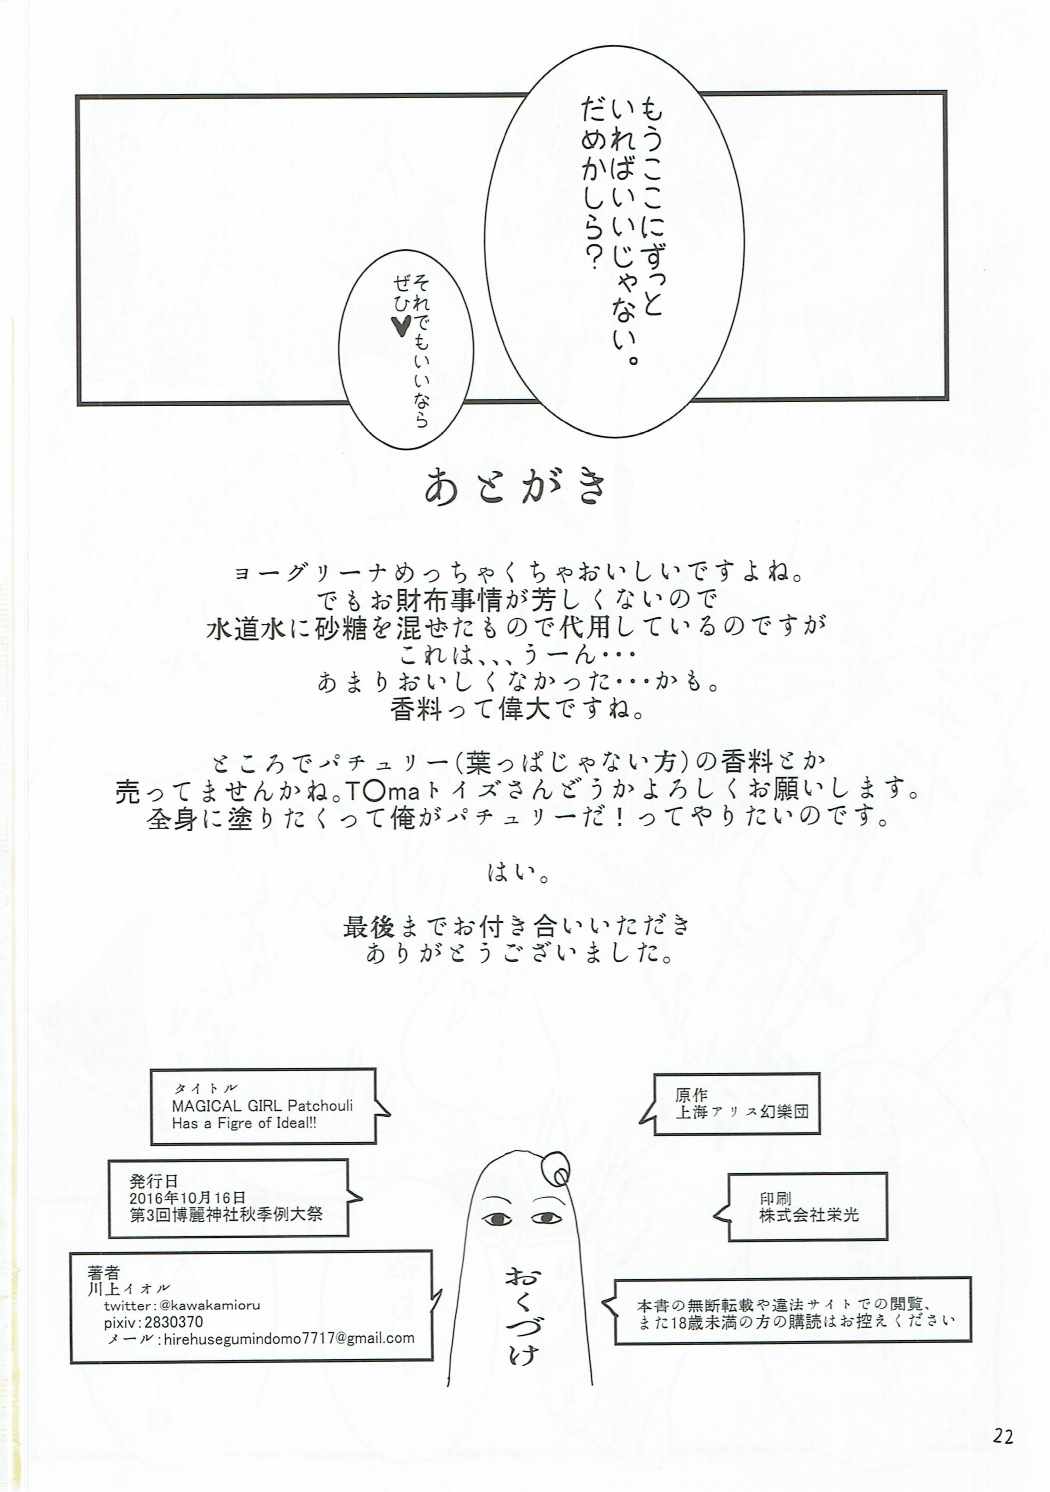 もうここにずっと
いればいいじゃない。
だめかしら?
それでもいいなら
ぜひ♥
あとがき
ヨーグリーナめっちゃくちゃおいしいですよね。
でもお財布事情が芳しくないので
水道水に砂糖を混ぜたもので代用しているのですが
これは、、、うーん・・・
あまりおいしくなかった・・・かも。
香料って偉大ですね。
ところでパチュリー(葉っぱじゃない方)の香料とか
売ってませんかね。T○maトイズさんどうかよろしくお願いします。
全身に塗りたくって俺がパチュリーだ!ってやりたいのです。
はい。
最後までお付き合いいただき
ありがとうございました。
タイトル
MAGICAL GIRL Patchouli
Has a Figre of Ideal!!
発行日
2016年10月16日
第3回博麗神社秋季例大祭
著者
川上イオル
twitter:@kawakamioru
pixiv:2830370
メール:hirehusegumindomo7717@gmail.com
おくづけ
原作
上海アリス幻樂団
印刷
株式会社栄光
本書の無断転載や違法サイトでの閲覧、
また18歳未満の方の購読はお控えください
22